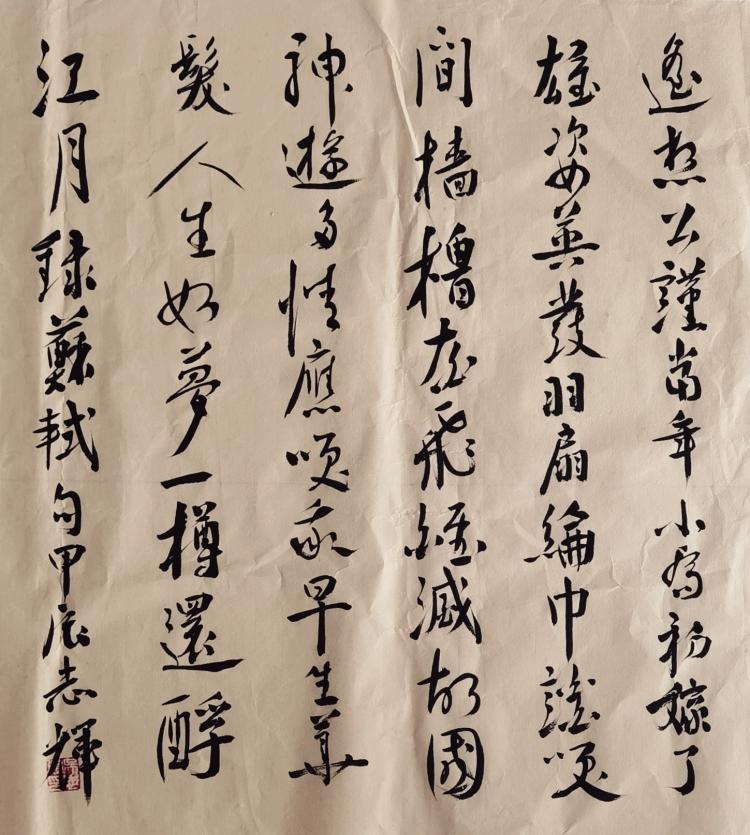 遙想公謹當年小喬初嫁了
雄姿英發羽扇綸巾談笑
間檣櫓灰飛煙滅故國
神遊多情應笑我早生華
髮人生如夢一樽還酹
江月錄蘇軾句甲辰志輝